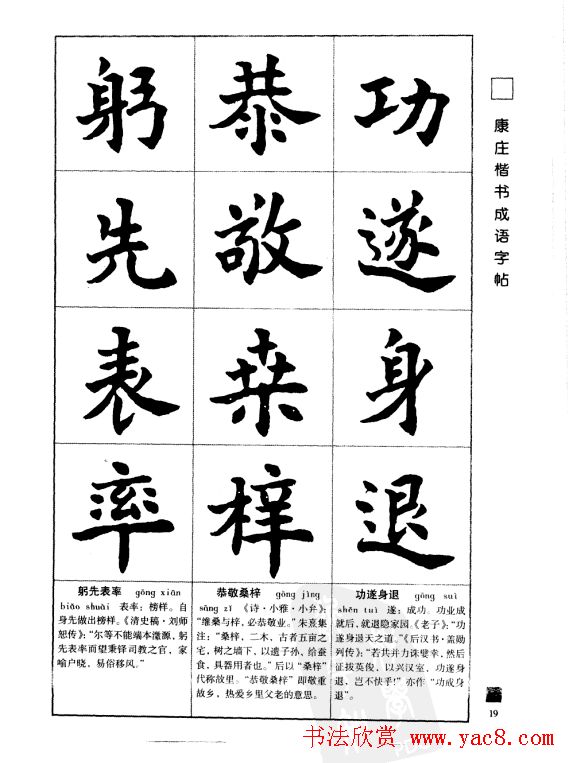 康庄楷书成语字帖
功遂身退
恭敬桒梓
躬先表率
功遂身退 gōng suì
shēn tuì 遂：成功。功业成
就后，就退隐家园。《老子》：“功
遂身退天之道。”《后汉书·盖勋
列传》：“若共并力诛嬖幸，然后
征拔英俊，以兴汉室，功遂身
退，岂不快乎！”亦作“功成身
退”。
恭敬桑梓 gōng jìng
sāng zǐ 《诗·小雅·小弁》：
“维桑与梓，必恭敬业。”朱熹集
注：“桑梓，二木，古者五亩之
宅，树之墙下，以遗子孙、给蚕
食，具器用者也。”后以“桑梓”
代称故里。“恭敬桑梓”即敬重
故乡，热爱乡里父老的意思。
躬先表率 gōng xiān
biǎo shuài 表率：榜样。自
身先做出榜样。《清史稿·刘师
恕传》：“尔等不能端本澂源，躬
先表率而望秉铎司教之官，家
喻户晓，易俗移风。”
19
书法欣赏 www.yac8.com